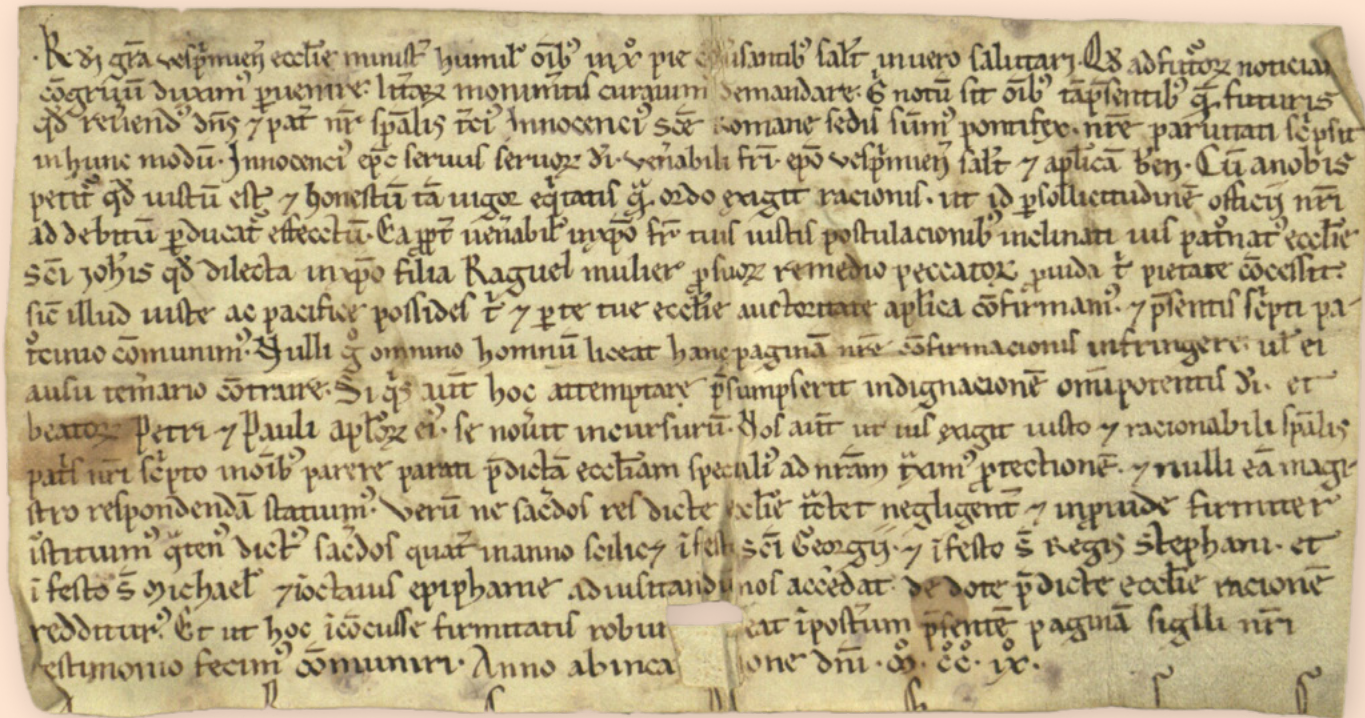 R. dī gr̄a vesp̄miēn ecclīe minist̄ humil̄ oīb⁹ in xp̄o pie sal̄t in vero salutari. Qd̄ ad futōꝝ noticiam
cōgruū duxim⁹ ꝑvenire. litt̄aꝝ monim̄tis curavim demandare. notū sit oīb⁹ tā p̄sentib⁹ q̄ futuris
qd̄ rev̄end⁹ dn̄s ⁊ pat̄ nr̄ sp̄alis Innocenci⁹ sc̄e romane sedis sūm⁹ pontifex. nr̄e parvitati sc̄psit
in hunc modū. Innocenci⁹ ep̄c servus servoꝝ dī. ven̄abili fr̄i. ep̄o vesp̄miēn sal̄t ⁊ aplīcā beñ. Cū a nobis
petit̄ qd̄ iustū est ⁊ honestū tā vigor eq̄tatis q̄. ordo exigit racionis. ut id ꝑ sollicitudinē officij nr̄i
ad debitū ꝑducat̄ effectū. Ea ꝓpt̄ ven̄abil̄ in xp̄o fr̄ tuis iustis postulacionib⁹ inclinati ius pat̄nat⁹ ecclīe
sc̄i joh̄is qd̄ dilecta in xp̄o filia Raguel mulier ꝓ suoꝝ remedio peccatoꝝ ꝓvida t̄ pietate cōcessit.
sic̄ illud iuste ac pacifice possides t̄ ⁊ ꝑ te tue ecclīe auctoritate aplīca cōfirmam⁹. ⁊ p̄sentis sc̄pti pa-
t̄cinio cōmunim⁹. Nulli g̊ omnino hominū liceat hanc paginā nr̄e cōfirmacionis infringere. ul̄ ei
ausu tem̄ario cōtraire. Si q̄s aut̄ hoc attemptare p̄sumpserit indignacionē omīpotentis dī. et
beatoꝝ Petri ⁊ Pauli apl̄oꝝ ei⁹. se nov̄it incursurū. Nos aut̄ ut ius exigit iusto ⁊ racionabili sp̄alis
pat̄s nr̄i sc̄pto in oīb⁹ parere parati p̄dictā eccl̄iam speciali⁹ ad nr̄am t̄xim⁹ ꝓtectionē. ⁊ nulli eā magi-
stro respondendā statuim⁹. Verū ne sac̄dos res dicte ecclīe t̄ctet negligent̄ ⁊ inꝓvide firmiter
īstituim⁹ q̄ten⁹ dict⁹ sac̄dos quat̄ in anno scilic⁊ ī festo sc̄i Georgij. ⁊ ī festo s̄ Regis Stephani. et
ī festo s̄ Michael̄ ⁊ ī octavis epiphanie ad visitandū nos accedat. de dote p̄dicte ecclīe racionē
redditur⁹. Et ut hoc īcōcusse firmitatis robur īpost̄um p̄sentē paginā sigilli nr̄i
testimonio fecim⁹ cōmuniri. Anno ab inca ione dn̄i. ꝏ. c̊c̊. ix̊.